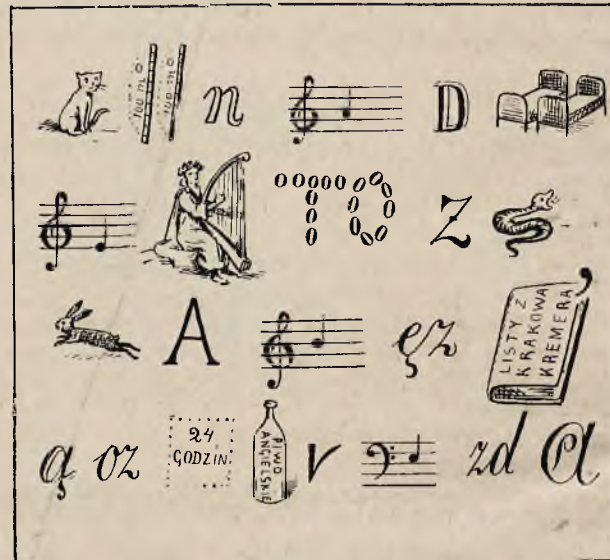 n D
TO Z
A ęz LISTY Z
KRAKOWA
KREMERA
ą oz 24
GODZIN PIWO
ANGIELSKIE r zd a